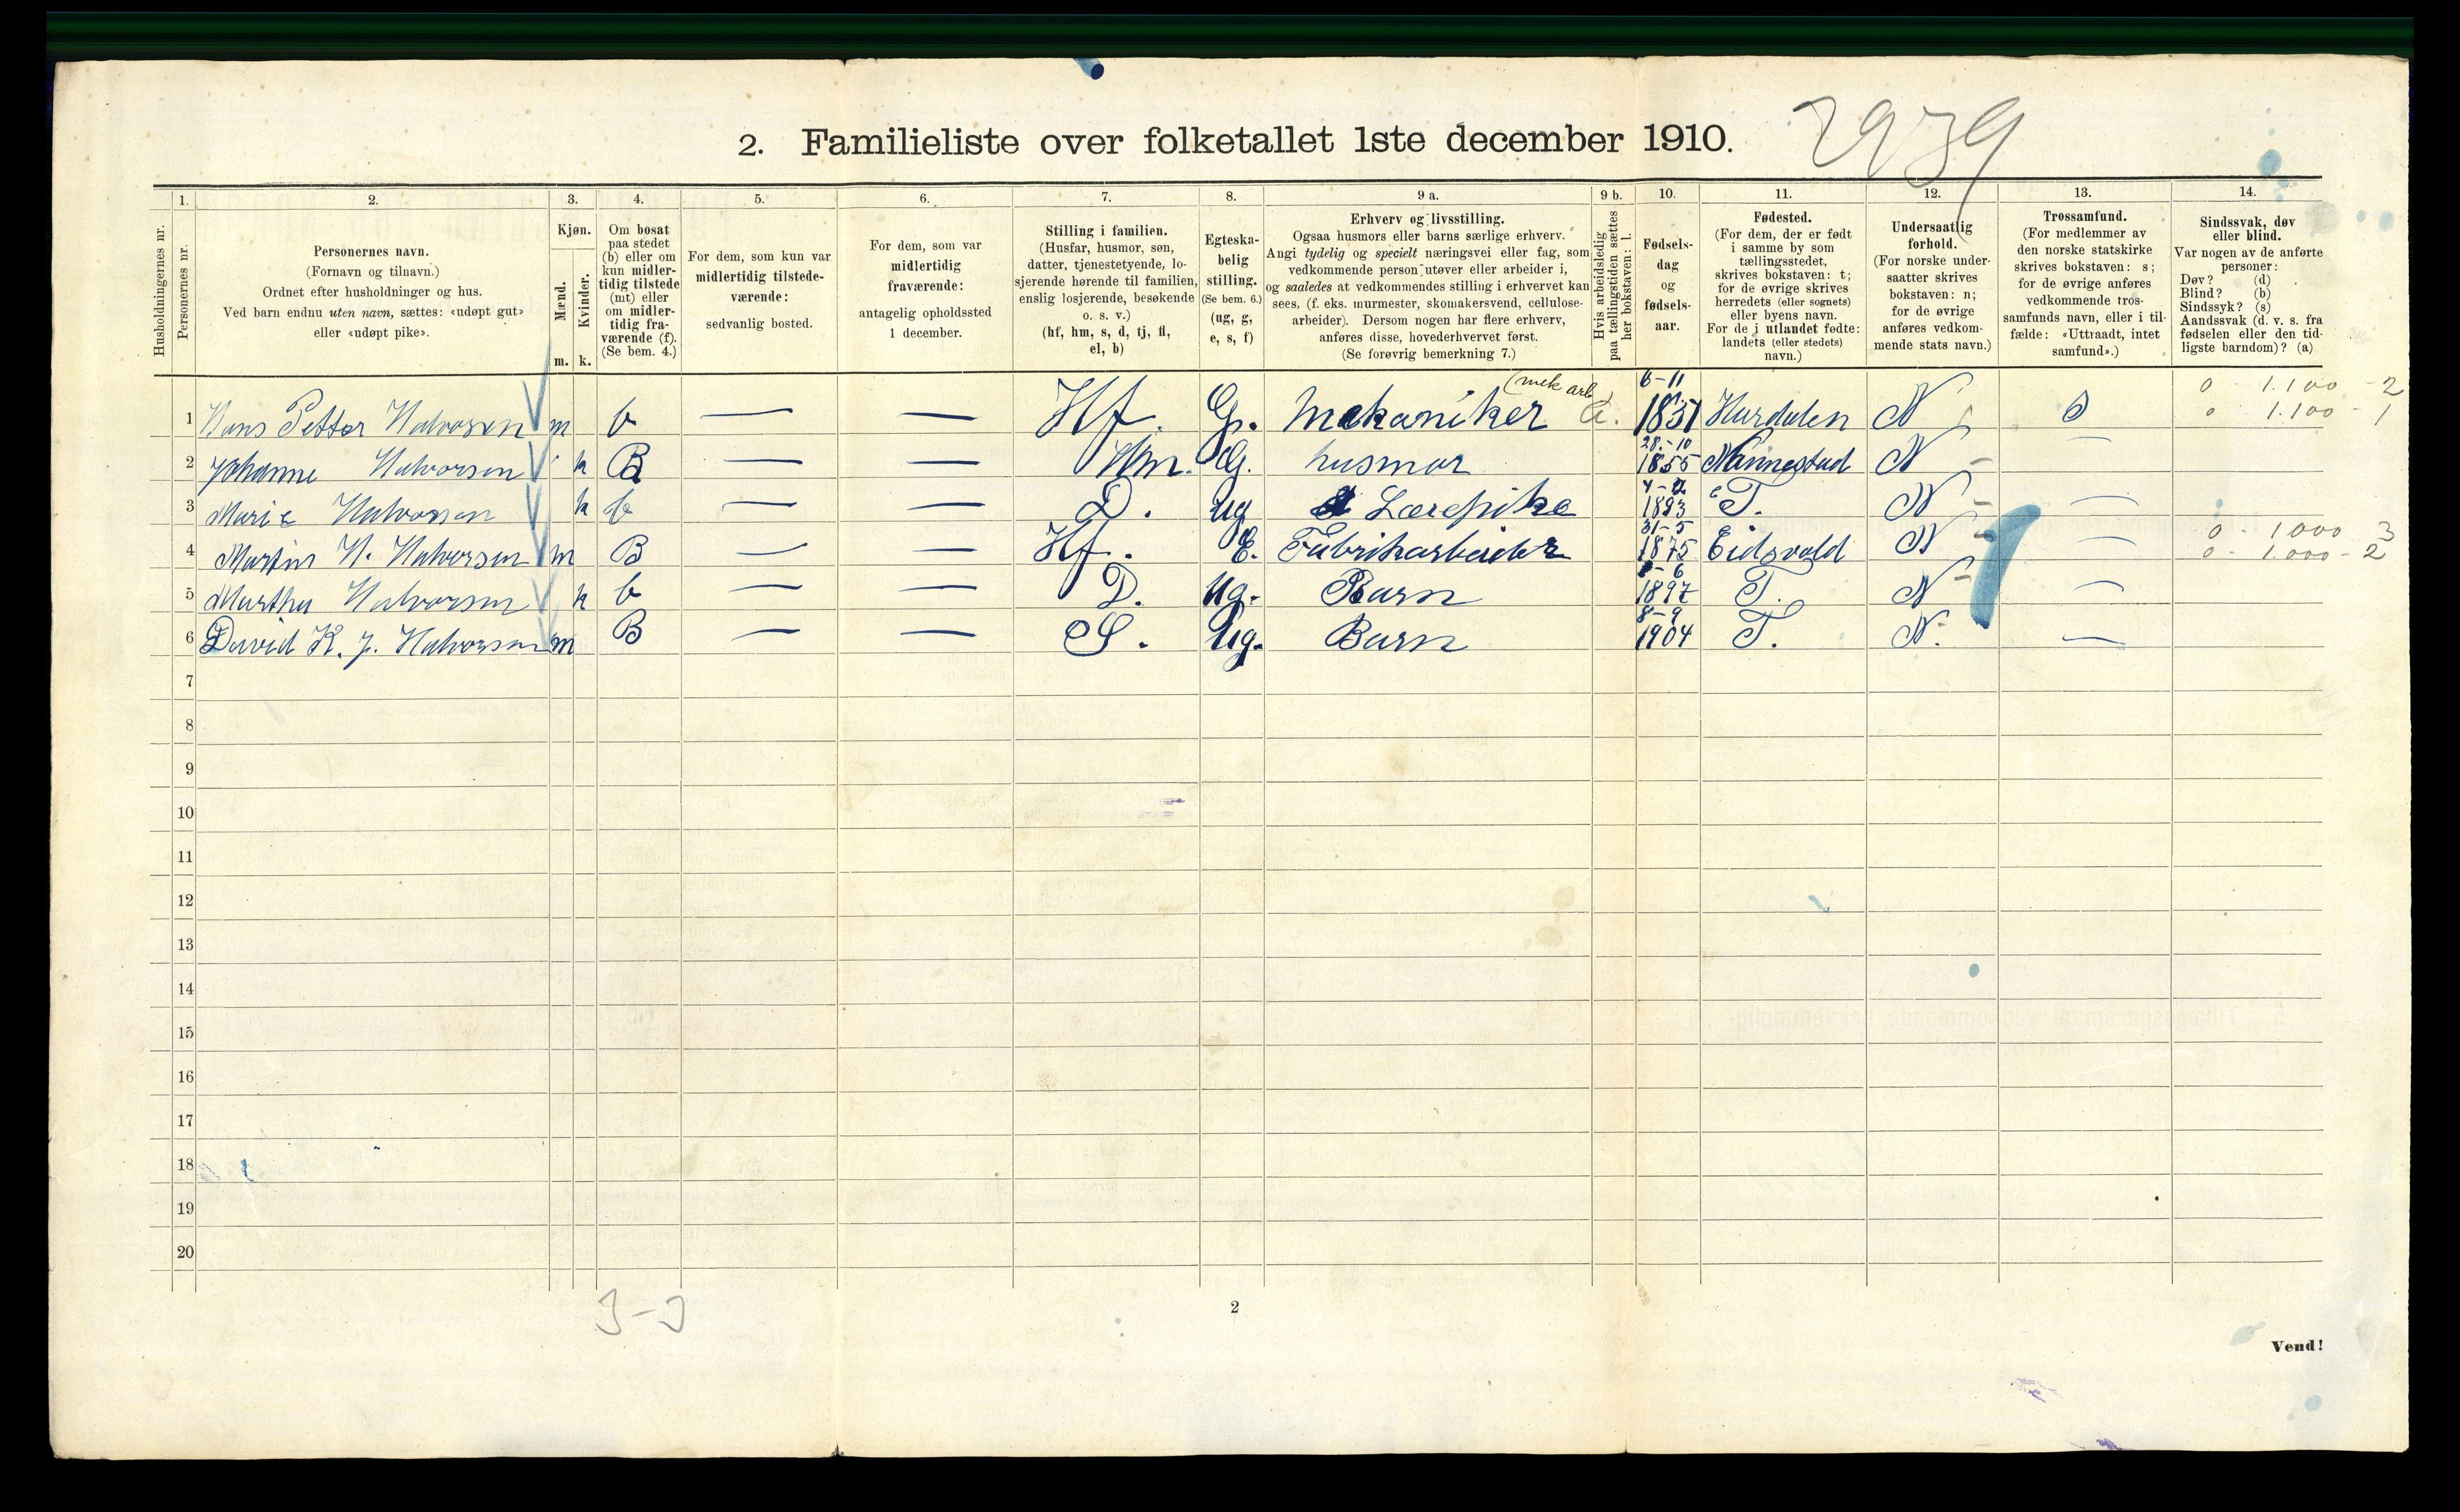 2. Familieliste over folketallet 1ste december 1910.
2939
1. 2. 3. 4. 5. 6. 7. 8. 9 a. 9 b. 10. 11. 12. 13. 14.
Husholdningernes nr.
Personernes nr.
Personernes navn.
(Fornavn og tilnavn.)
Ordnet efter husholdninger og hus.
Ved barn endnu uten navn, sættes: «udøpt gut»
eller «udøpt pike».
Kjøn.
Mænd.
Kvinder.
m. k.
Om bosat
paa stedet
(b) eller om
kun midler-
tidig tilstede
(mt) eller
om midler-
tidig fra-
værende (f).
(Se bem. 4.)
For dem, som kun var
midlertidig tilstede-
værende:
sedvanlig bosted.
For dem, som var
midlertidig
fraværende:
antagelig opholdssted
1 december.
Stilling i familien.
(Husfar, husmor, søn,
datter, tjenestetyende, lo-
sjerende hørende til familien,
enslig losjerende, besøkende
o. s. v.)
(hf, hm, s, d, tj, fl,
el, b)
Egteska-
belig
stilling.
(Se bem. 6.)
(ug, g,
e, s, f)
Erhverv og livsstilling.
Ogsaa husmors eller barns særlige erhverv.
Angi tydelig og specielt næringsvei eller fag, som
vedkommende person utøver eller arbeider i,
og saaledes at vedkommendes stilling i erhvervet kan
sees, (f. eks. murmester, skomakersvend, cellulose-
arbeider). Dersom nogen har flere erhverv,
anføres disse, hovederhvervet først.
(Se forøvrig bemerkning 7.)
Hvis arbeidsledig
paa tællingstiden sættes
her bokstaven: l.
Fødsels-
dag
og
fødsels-
aar.
Fødested.
(For dem, der er født
i samme by som
tællingsstedet,
skrives bokstaven: t;
for de øvrige skrives
herredets (eller sognets)
eller byens navn.
For de i utlandet fødte:
landets (eller stedets)
navn.)
Undersaatlig
forhold.
(For norske under-
saatter skrives
bokstaven: n;
for de øvrige
anføres vedkom-
mende stats navn.)
Trossamfund.
(For medlemmer av
den norske statskirke
skrives bokstaven: s;
for de øvrige anføres
vedkommende tros-
samfunds navn, eller i til-
fælde: «Uttraadt, intet
samfund».)
Sindssvak, døv
eller blind.
Var nogen av de anførte
personer:
Døv? (d)
Blind? (b)
Sindssyk? (s)
Aandssvak (d. v. s. fra
fødselen eller den tid-
ligste barndom)? (a)
(mek arb) 6-11 0 - 1.100 - 2
1 Hans Petter Halvorsen m b — — Hf. G. Mekaniker a. 1851 Hurdalen N S 0 1.100 - 1
28-10
2 Johanne Halvorsen k B — — Hm. G. husmor 1855 Nannestad N —
3 Marie Halvorsen k b — — D. Ug Lærepike 1893 T. N —
31-5 0 - 1000 3
4 Martin H. Halvorsen m B — — Hf. E. Fabrikarbeider 1875 Eidsvold N — 0 - 1.000 - 2
5 Martha Halvorsen k b — — D. Ug. Barn 1897 T. N —
8-9
6 David K. J. Halvorsen m B — — S. Ug. Barn 1904 T. N. —
7
8
9
10
11
12
13
14
15
16
17
18
19
20
3-3
2
Vend!